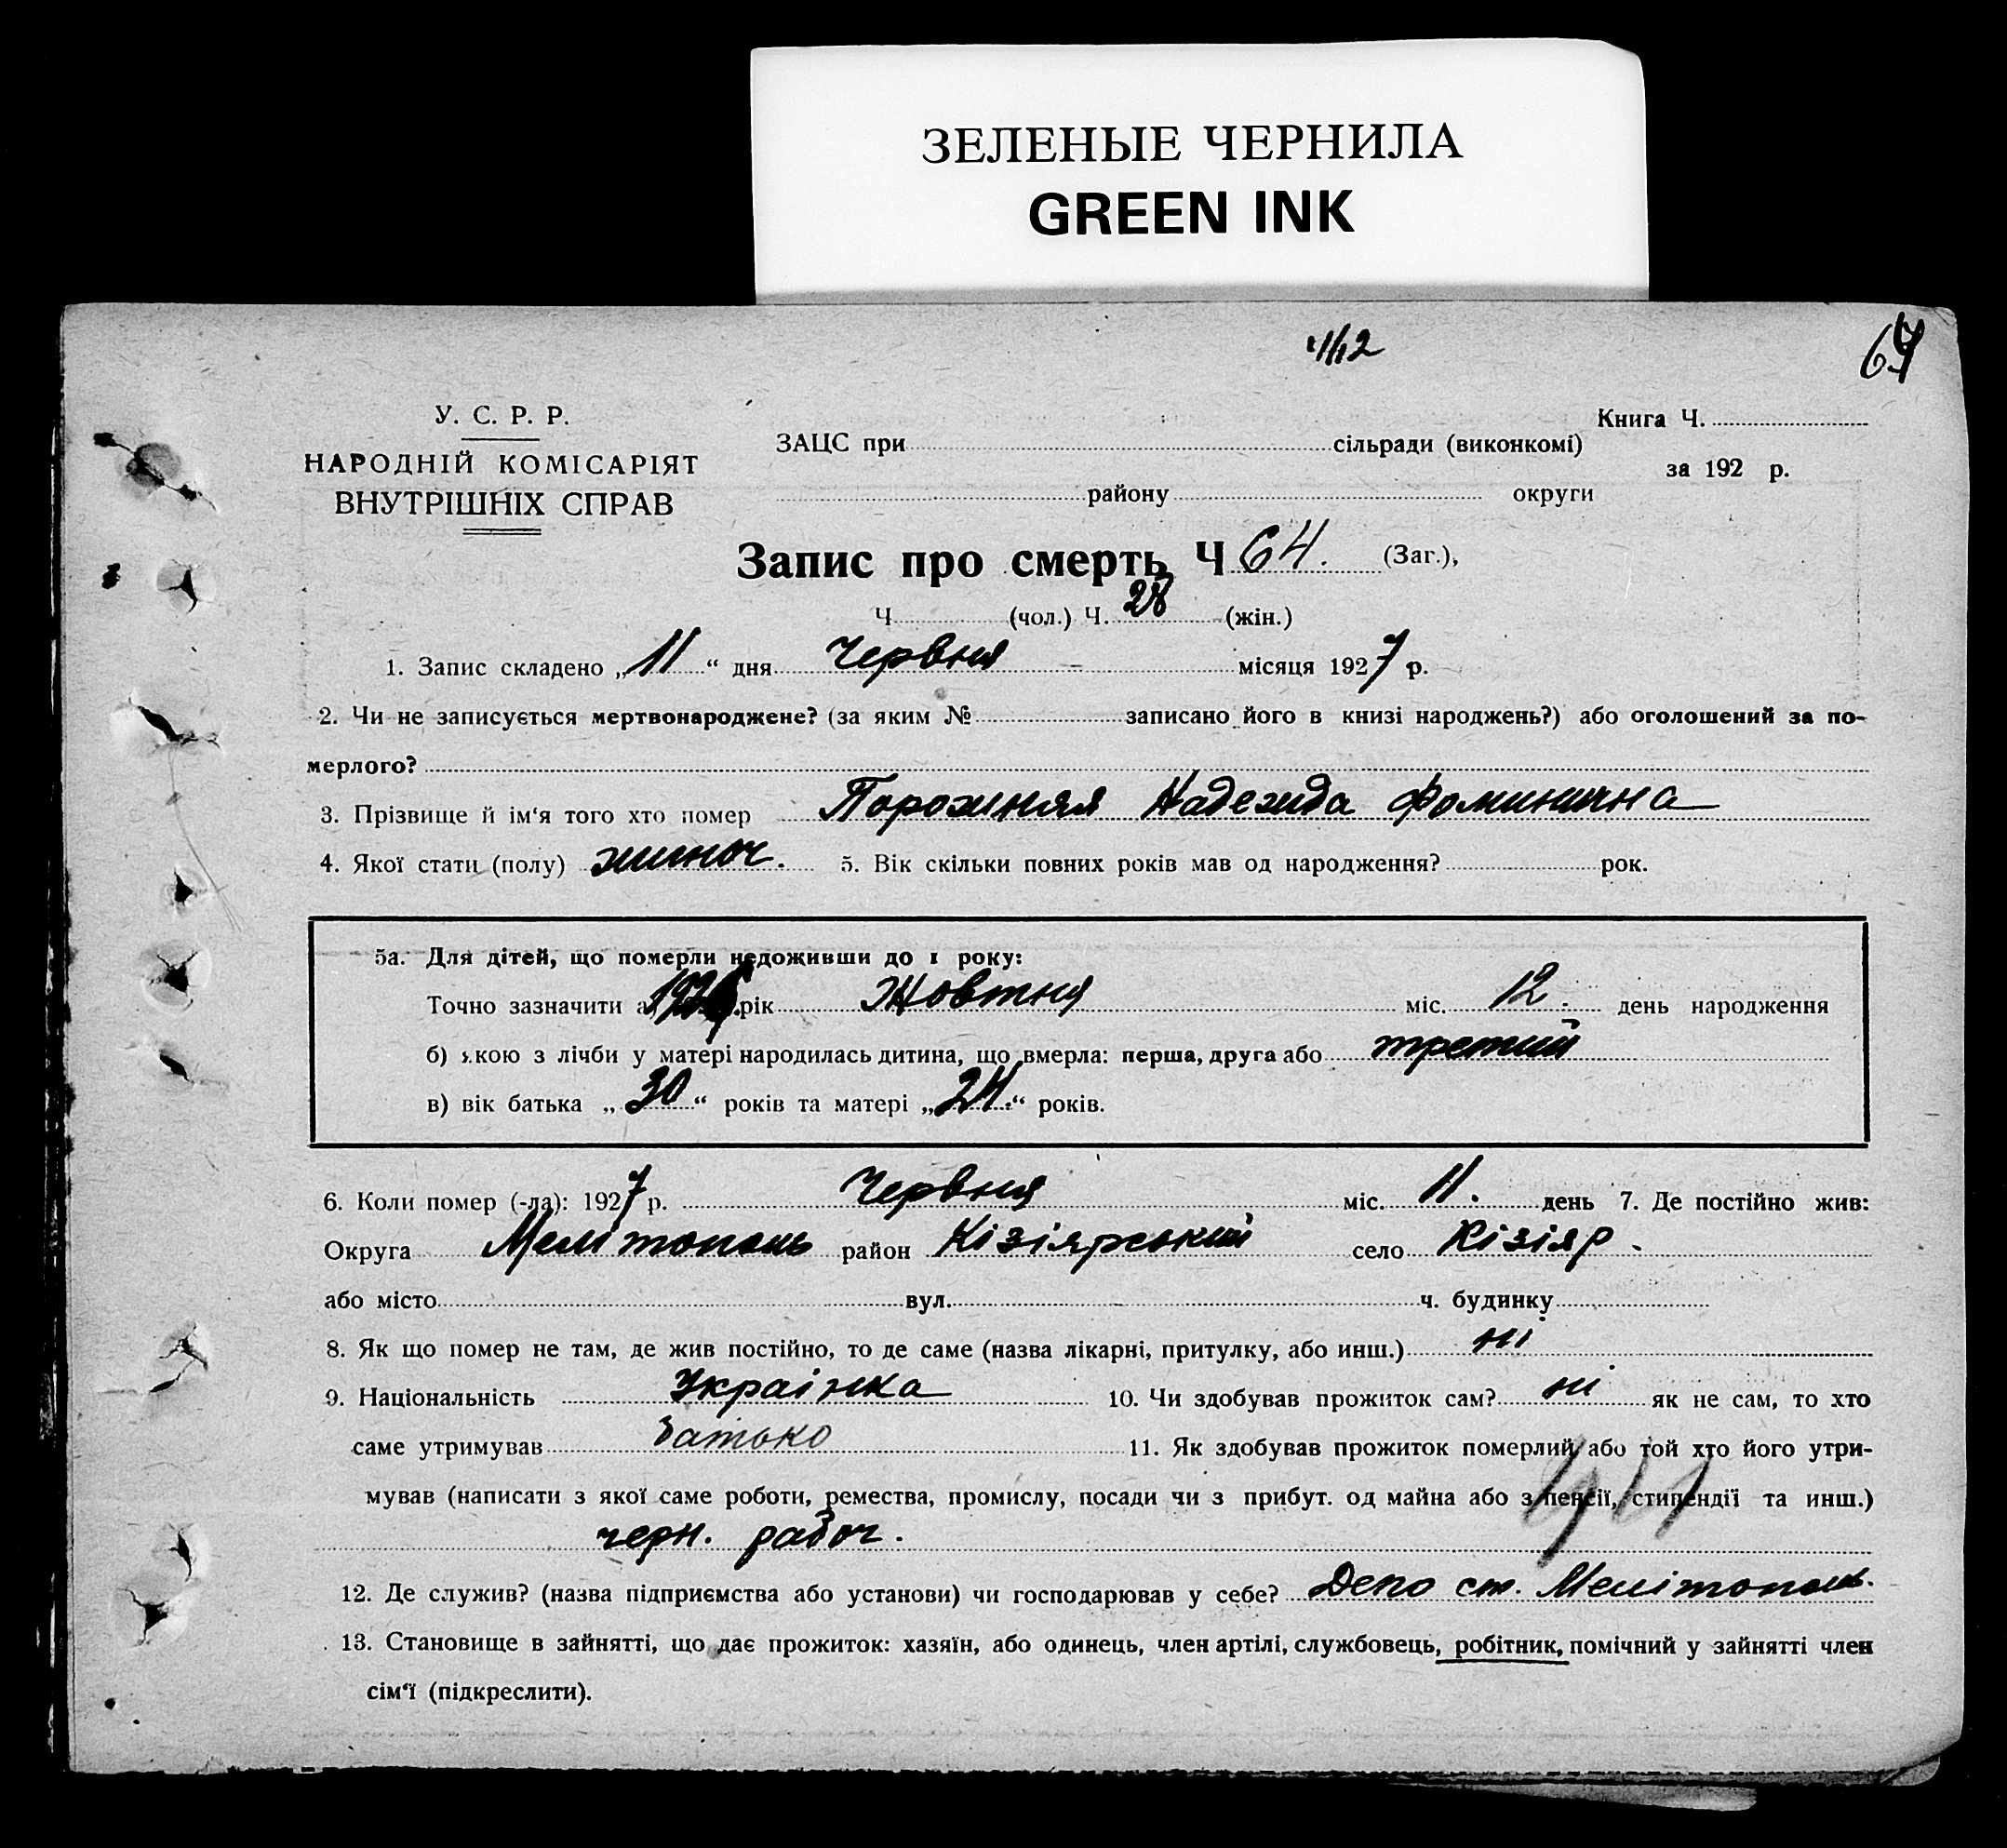 ЗЕЛЕНЫЕ ЧЕРНИЛА
GREEN INK
У. С. Р. Р.
НАРОДНІЙ КОМІСАРІЯТ
ВНУТРІШНІХ СПРАВ
Книга Ч.
ЗАЦС при сільради (виконкомі)
за 192 р.
району округи
Запис про смерть Ч 64. (Заг.),
Ч (чол.) Ч. 28 (жін.)
1. Запис складено „11“ дня Червня місяця 1927 р.
2. Чи не записується мертвонароджене? (за яким № записано його в книзі народжень?) або оголошений за по-
мерлого?
3. Прізвище й ім'я того хто помер Порожняя Надежда Фоминична
4. Якої стати (полу) жиноч. 5. Вік скільки повних років мав од народження? рок.
5а. Для дітей, що померли недоживши до 1 року:
Точно зазначити а) рік Жовтня міс. 12 день народження
б) якою з лічби у матері народилась дитина, що вмерла: перша, друга або третий
в) вік батька „30“ років та матері „24.“ років.
6. Коли помер (-ла): 1927 р. Червня міс. 11. день 7. Де постійно жив:
Округа Мелітополь район Кізіярський село Кізіяр.
або місто вул. ч. будинку
8. Як що помер не там, де жив постійно, то де саме (назва лікарні, притулку, або инш.) ні
9. Національність Українка 10. Чи здобував прожиток сам? ні як не сам, то хто
саме утримував батько 11. Як здобував прожиток померлий або той хто його утри-
мував (написати з якої саме роботи, ремества, промислу, посади чи з прибут. од майна або з пенсії, стипендії та инш.)
черн. рабоч.
12. Де служив? (назва підприємства або установи) чи господарював у себе? Депо ст. Мелітополь.
13. Становище в зайнятті, що дає прожиток: хазяїн, або одинець, член артілі, службовець, робітник, помічний у зайнятті член
сім'ї (підкреслити).